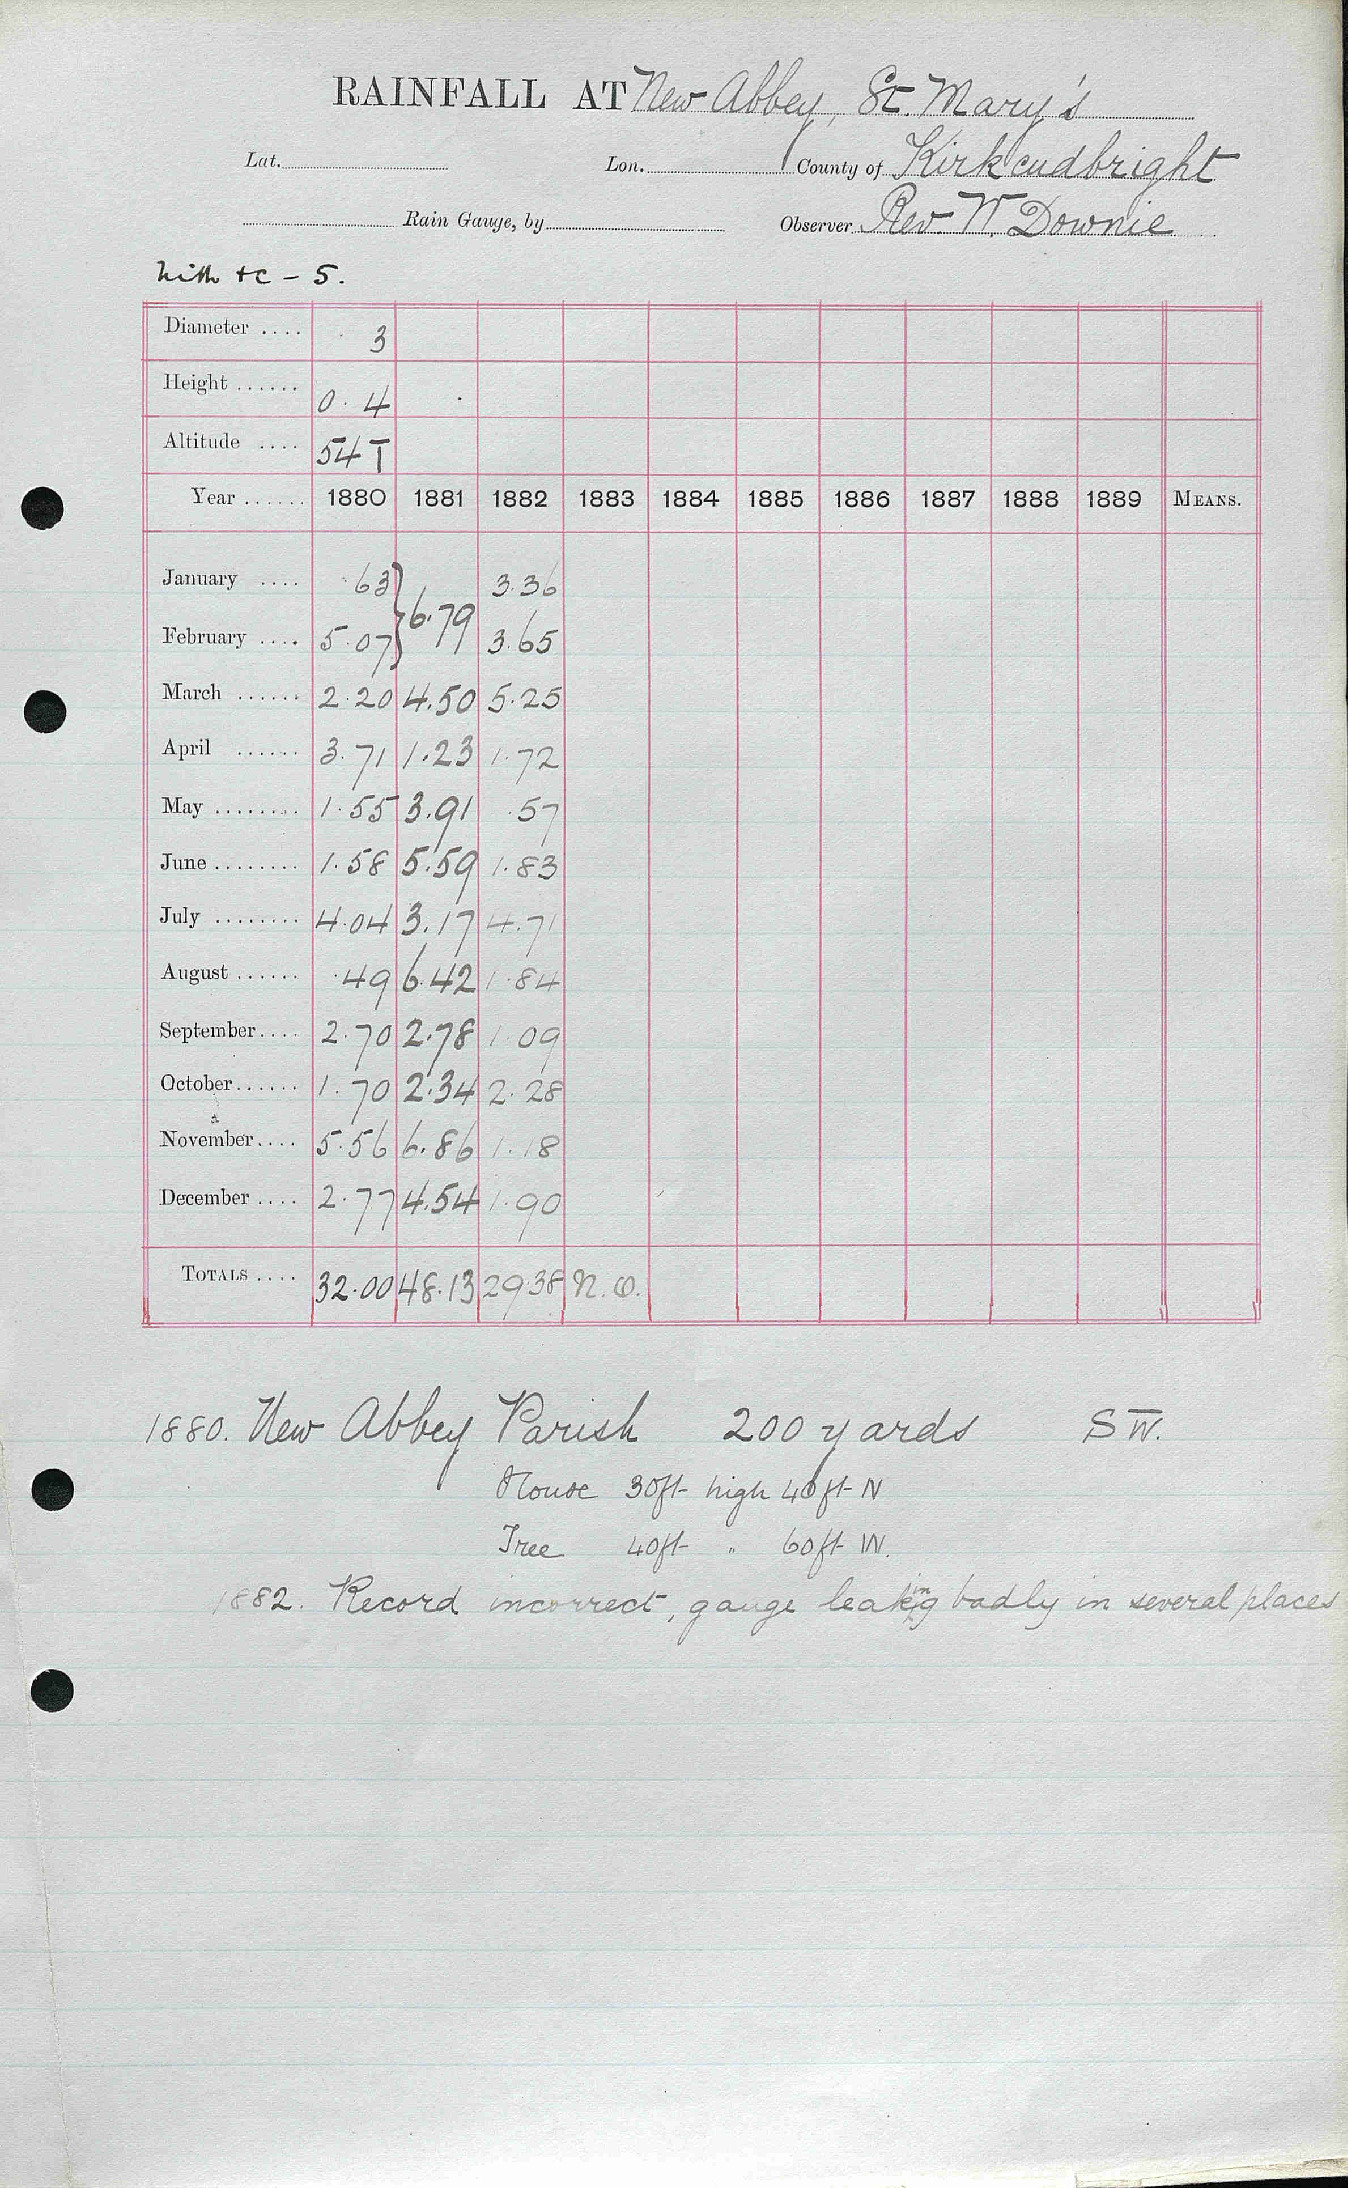 RAINFALL AT New Abbey, St. Mary's
Lat. Lon. County of Kirkcudbright
Rain Gauge, by Observer Rev. W. Downie
Nith &c – 5.
Diameter .... 3
Height ...... 0.4
Altitude .... 54 T
Year ...... 1880 1881 1882 1883 1884 1885 1886 1887 1888 1889 MEANS.
January .... .63 } 6.79 3.36
February .... 5.07 3.65
March ...... 2.20 4.50 5.25
April ...... 3.71 1.23 1.72
May ........ 1.55 3.91 .57
June ........ 1.58 5.59 1.83
July ........ 4.04 3.17 4.71
August ...... .49 6.42 1.84
September.... 2.70 2.78 1.09
October...... 1.70 2.34 2.28
November.... 5.56 6.86 1.18
December .... 2.77 4.54 1.90
TOTALS .... 32.00 48.13 29.38 N.O.
1880. New Abbey Parish 200 yards SW.
House 30ft high 40ft N
Tree 40ft " 60ft W.
1882. Record incorrect, gauge leaking badly in several places